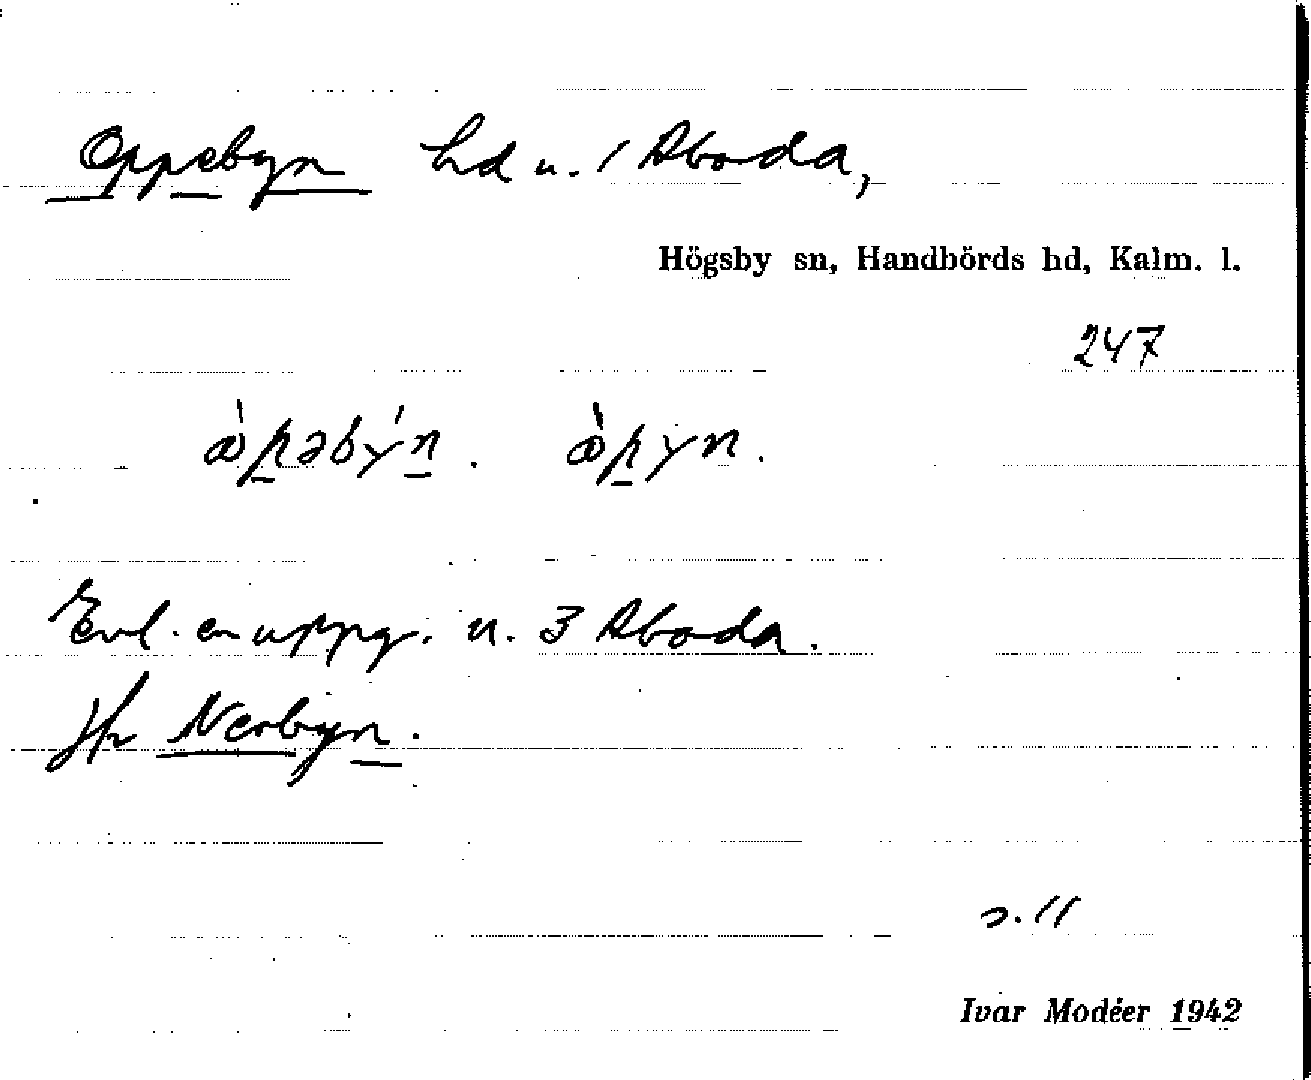 Oppebyn hd u. 1 Aboda,
Högsby sn, Handbörds hd, Kalm. l.
247
ɷ̀pəbýn. ɷ̀pyn.
Enl. en uppg. u. 3 Aboda.
Jfr Nerbyn.
s. 11
Ivar Modéer 1942